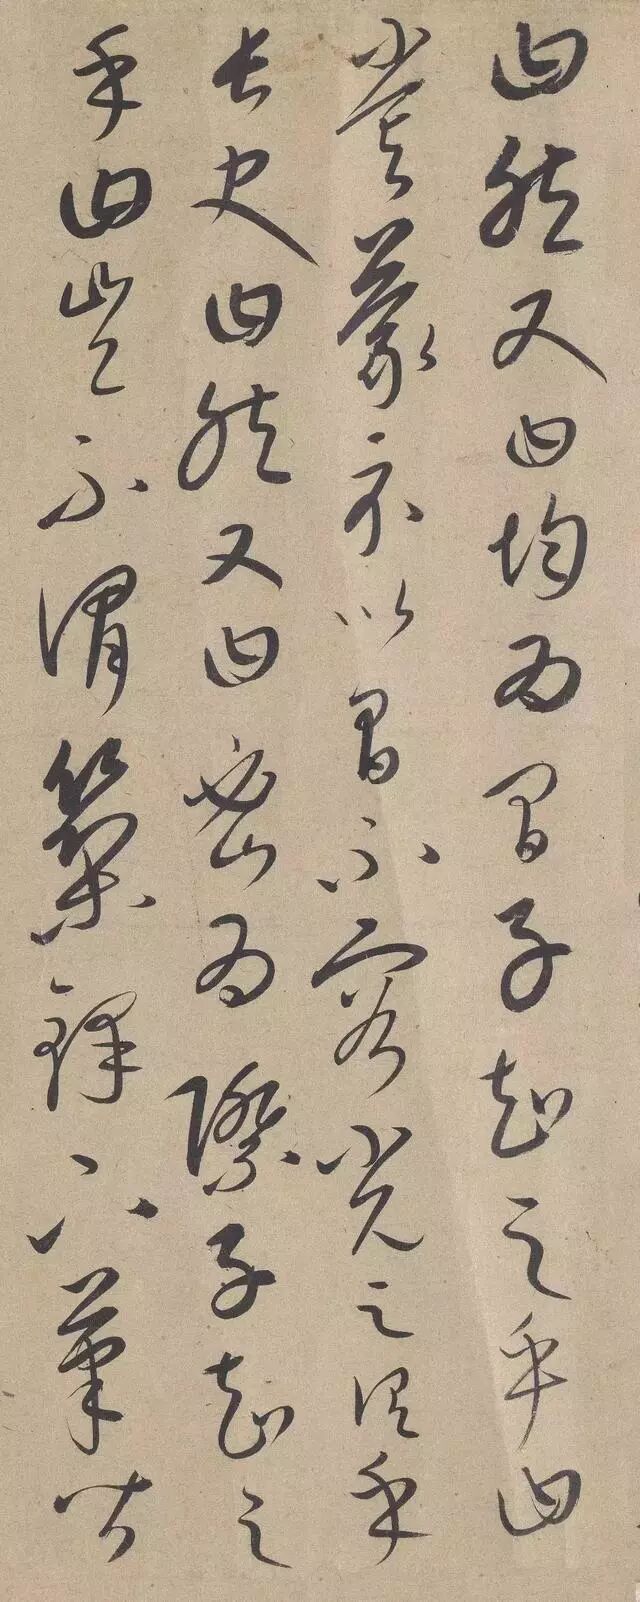 曰然又曰均為間子知之乎曰
嘗蒙示以間不容光之謂乎
長史曰然又曰密為際子知之
乎曰豈不謂築鋒下筆皆